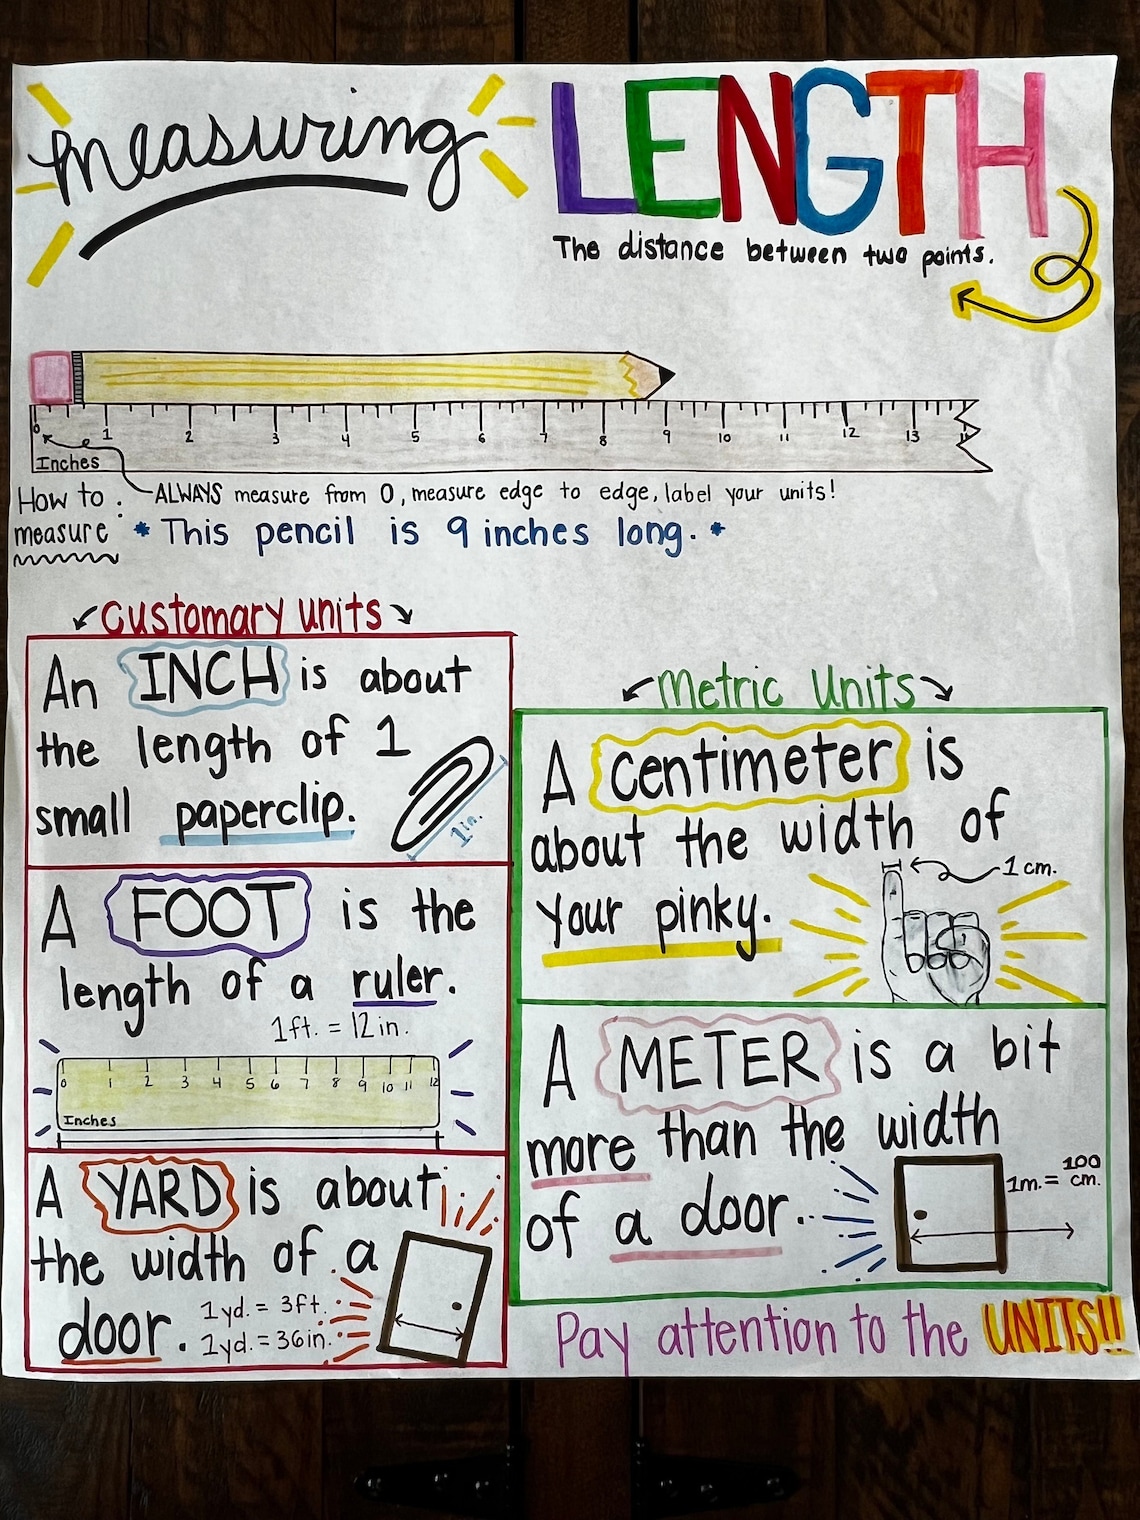 measuring LENGTH
The distance between two points.
0 1 2 3 4 5 6 7 8 9 10 11 12 13
Inches
How to measure: ALWAYS measure from 0, measure edge to edge, label your units!
* This pencil is 9 inches long. *
Customary units
An INCH is about
the length of 1
small paperclip.
1 in.
A FOOT is the
length of a ruler.
1ft. = 12in.
0 1 2 3 4 5 6 7 8 9 10 11 12
Inches
A YARD is about
the width of a
door.
1yd. = 3ft.
1yd. = 36in.
Metric Units
A centimeter is
about the width of
your pinky.
1 cm.
A METER is a bit
more than the width
of a door.
1m. = 100 cm.
Pay attention to the UNITS!!